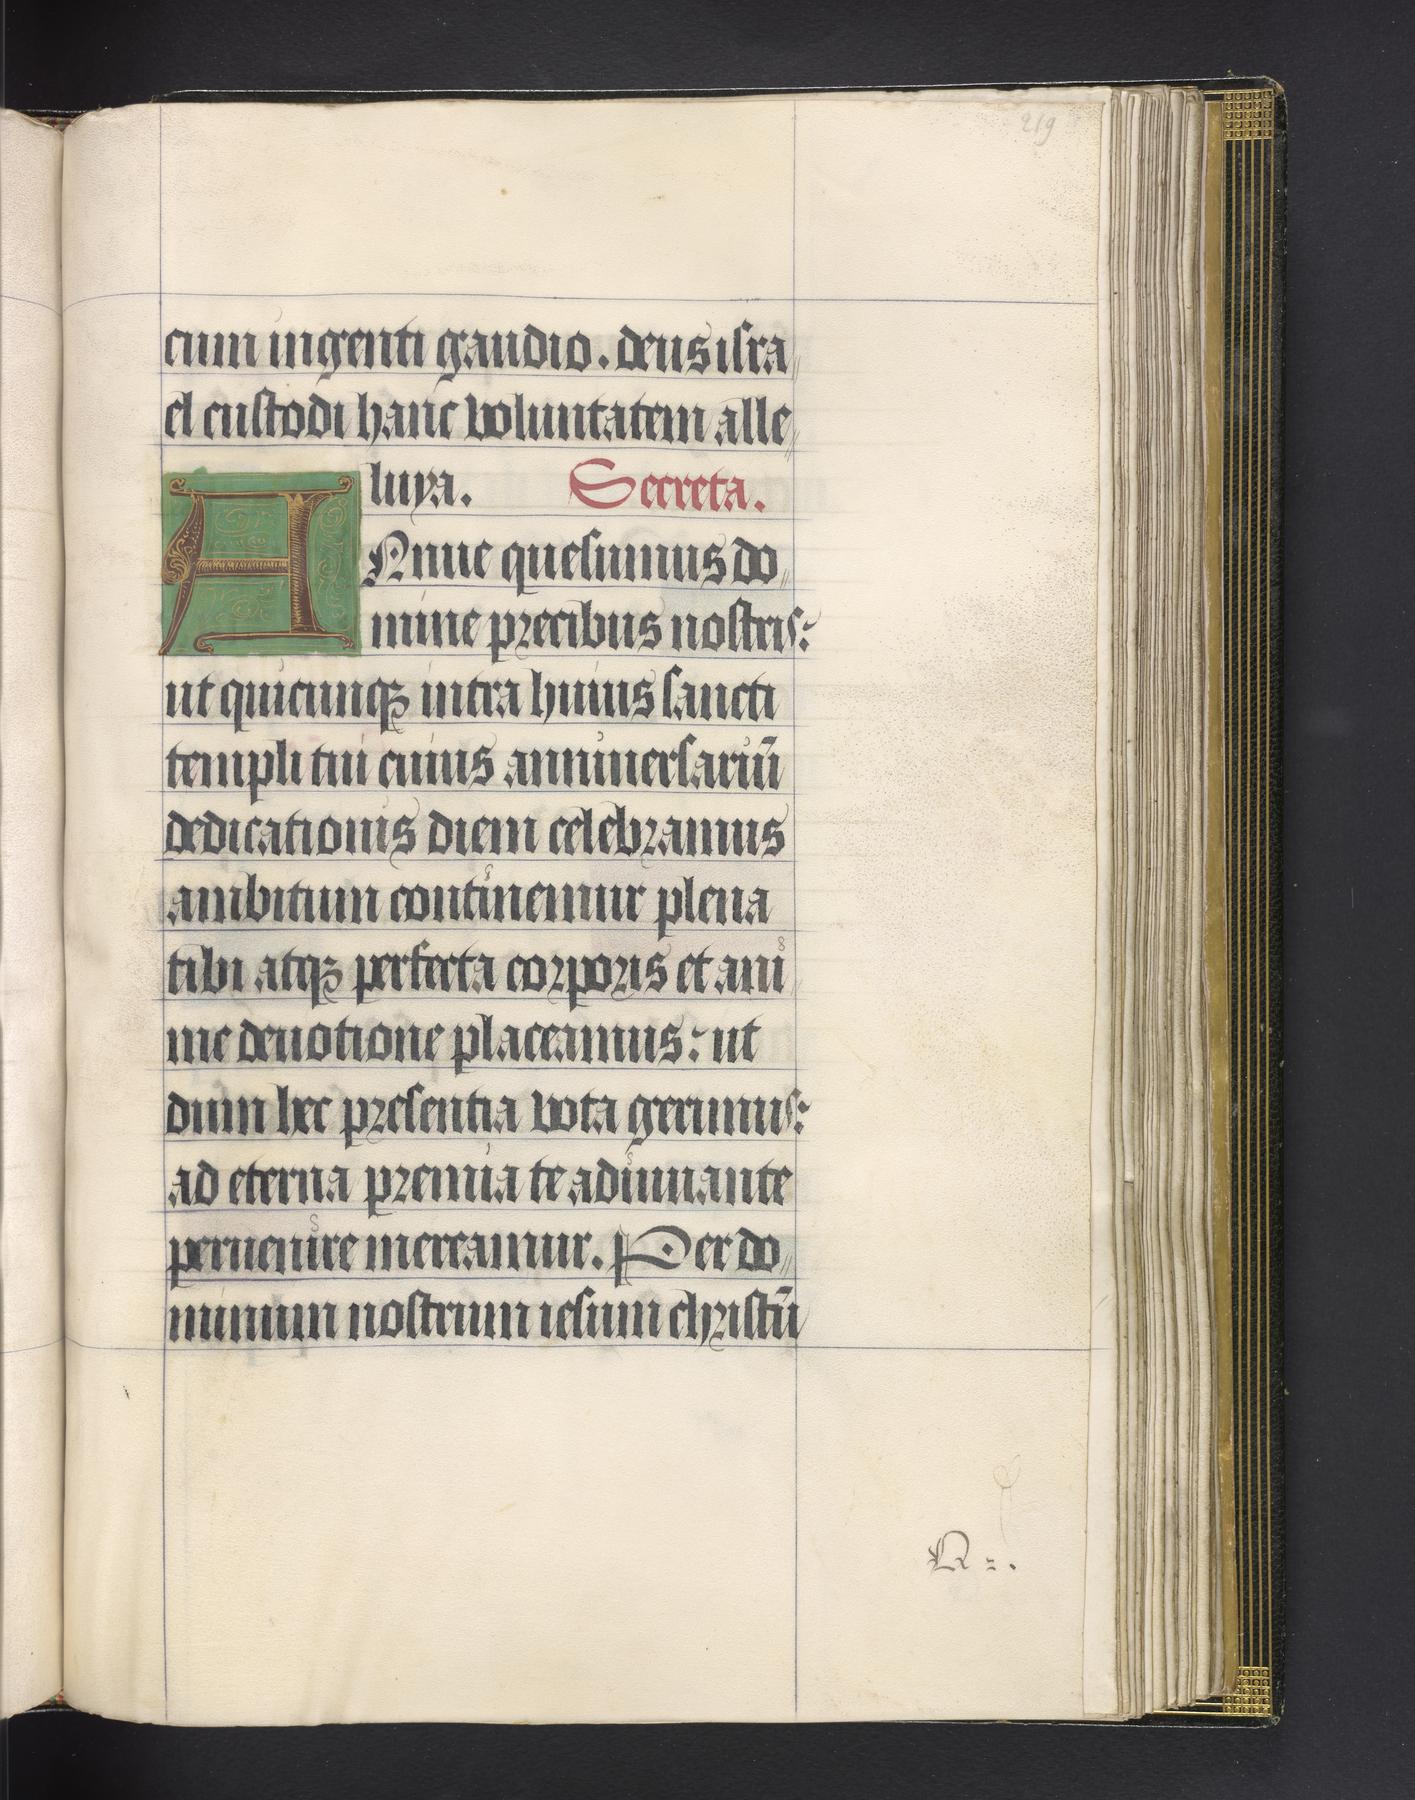 219
cum ingenti gaudio. deus isra
el custodi hanc voluntatem alle
luya. Secreta.
ANnue quesumus do
mine precibus nostris:
ut quicunqꝫ intra huius sancti
templi tui cuius anniuersariū
dedicationis diem celebramus
ambitum continemur plena
tibi atqꝫ perfecta corporis et ani
me deuotione placeamus: ut
dum hec presentia vota gerimus:
ad eterna premia te adiuuante
peruenire mereamur. Per do
minum nostrum iesum christū